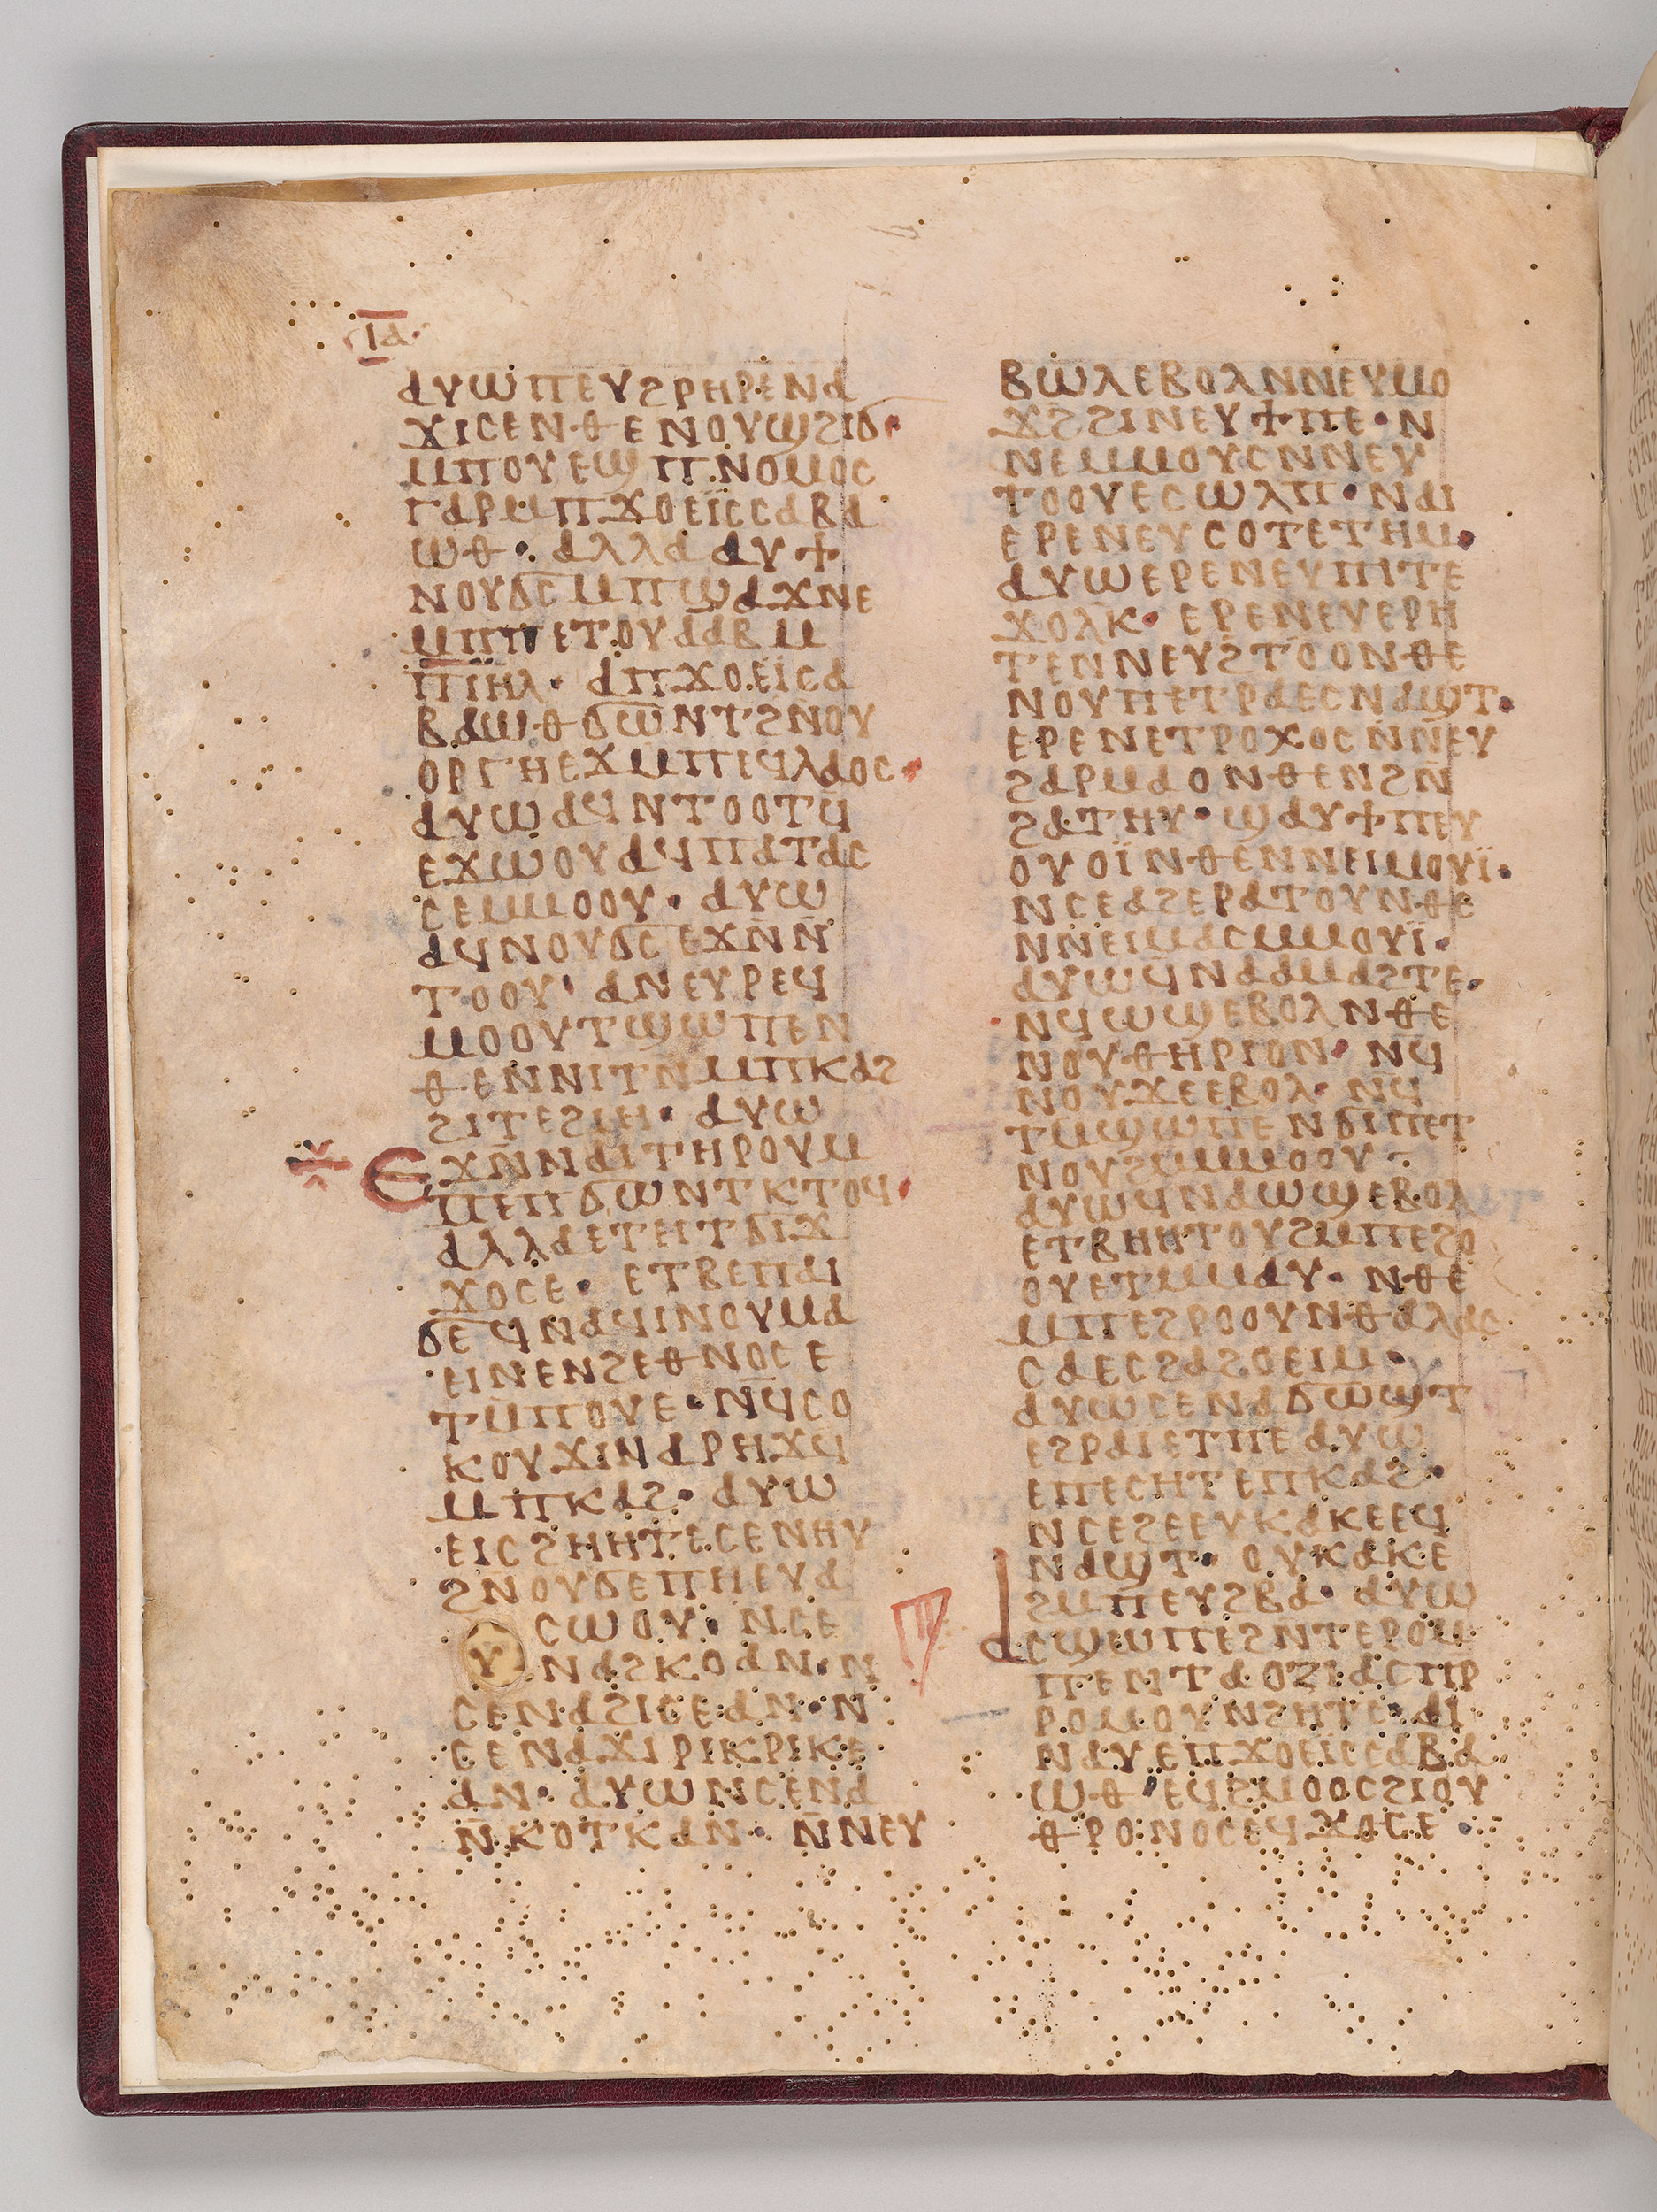 ⲓⲁ
ⲁⲩⲱⲡⲉⲩϩⲣⲏⲣⲉⲛⲁ
ϫⲓⲥⲉⲛⲑⲉⲛⲟⲩϣϩⲓϭ·
ⲙⲡⲟⲩⲉϣⲡ·ⲛⲟⲙⲟⲥ
ⲅⲁⲣⲙⲡϫⲟⲉⲓ̈ⲥⲥⲁⲃⲁ
ⲱⲑ· ⲁⲗⲗⲁⲁⲩϯ
ⲛⲟⲩϭⲥⲙⲡϣⲁϫⲛⲉ
ⲙⲡⲡⲉⲧⲟⲩⲁⲁⲃⲙ
ⲡⲓ̈ⲏⲗ· ⲁⲡϫⲟⲉⲓ̈ⲥⲁ
ⲃⲁⲱⲑϭⲱⲛⲧϩⲛ̄ⲟⲩ
ⲟⲣⲅⲏⲉϫⲙⲡⲉϥⲗⲁⲟⲥ·
ⲁⲩⲱⲁϥⲛⲧⲟⲟⲧϥ̄
ⲉϫⲱⲟⲩⲁϥⲡⲁⲧⲁⲥ
ⲥⲉⲙⲙⲟⲟⲩ· ⲁⲩⲱ
ⲁϥⲛⲟⲩϭⲥⲉϫⲛ̄ⲛ̄
ⲧⲟⲟⲩ· ⲁⲛⲉⲩⲣⲉϥ
ⲙⲟⲟⲩⲧϣⲱⲡⲉⲛ
ⲑⲉⲛⲛⲓⲧⲛ̄ⲙⲡⲕⲁϩ
ϩⲓⲧⲉϩⲓⲏ· ⲁⲩⲱ
ⲉϫⲛ̄ⲛⲁⲓⲧⲏⲣⲟⲩⲙ
ⲡⲉⲡϭⲱⲛⲧⲕⲧⲟϥ·
ⲁⲗⲗⲁⲉⲧⲉⲓⲧϭⲓϫ
ϫⲟⲥⲉ· ⲉⲧⲃⲉⲡⲁⲓ
ϭⲉϥⲛⲁϥⲓⲛⲟⲩⲙⲁ
ⲉⲓⲛⲉⲛϩⲉⲑⲛⲟⲥⲉ
ⲧⲙ̄ⲡⲟⲩⲉ·ⲛϥ̄ⲥⲟ
ⲕⲟⲩϫⲓⲛⲁⲣⲏϫϥ
ⲙⲡⲕⲁϩ· ⲁⲩⲱ
ⲉⲓⲥϩⲏⲏⲧⲉⲥⲉⲛⲏⲩ
ϩⲛ̄ⲟⲩϭⲉⲡⲏⲉⲩⲁ
ⲥⲱⲟⲩ· ⲛⲥⲉ
ⲛⲁϩⲕⲟⲁⲛ·ⲛ
ⲥⲉⲛⲁϩⲓⲥⲉⲁⲛ·ⲛ
ⲥⲉⲛⲁϫⲓⲣⲓⲕⲣⲓⲕⲉ
ⲁⲛ· ⲁⲩⲱⲛⲥⲉⲛⲁ
ⲛ̄ⲕⲟⲧⲕⲁⲛ· ⲛ̄ⲛⲉⲩ
ⲃⲱⲗⲉⲃⲟⲗⲛⲛⲉⲩⲙⲟ
ϫϩϩⲓⲛⲉⲩϯⲡⲉ·ⲛ
ⲛⲉⲙⲙⲟⲩⲥⲛⲛⲉⲩ
ⲧⲟⲟⲩⲉⲥⲱⲗⲡ·ⲛⲁⲓ
ⲉⲣⲉⲛⲉⲩⲥⲟⲧⲉⲧⲏⲙ·
ⲁⲩⲱⲉⲣⲉⲛⲉⲩⲡⲓⲧⲉ
ϫⲟⲗⲕ· ⲉⲣⲉⲛⲉⲩⲉⲣⲏ
ⲧⲉⲛⲛⲉⲩϩⲧⲟⲟⲛⲑⲉ
ⲛⲟⲩⲡⲉⲧⲣⲁⲉⲥⲛⲁϣⲧ·
ⲉⲣⲉⲛⲉⲧⲣⲟⲭⲟⲥⲛ̄ⲛⲉⲩ
ϩⲁⲣⲙⲁⲟⲛⲑⲉⲛϩⲛ̄
ϩⲁⲧⲏⲩ·ϣⲁⲩϯⲡⲉⲩ
ⲟⲩⲟⲓ̈ⲛⲑⲉⲛⲛⲉⲓⲙⲟⲩⲓ̈·
ⲛⲥⲉⲁϩⲉⲣⲁⲧⲟⲩⲛⲑⲉ
ⲛⲛ̄ⲉⲓⲙⲁⲥⲙⲙⲟⲩⲓ̈·
ⲁⲩⲱϥⲛⲁⲁⲙⲁϩⲧⲉ·
ⲛϥⲱϣⲉⲃⲟⲗⲛⲑⲉ
ⲛⲟⲩⲑⲏⲣⲓⲟⲛ· ⲛϥ
ⲛⲟⲩϫⲉⲉⲃⲟⲗ· ⲛϥ
ⲧⲙϣⲱⲡⲉⲛϭⲓⲡⲉⲧ
ⲛⲟⲩϩⲙⲙⲙⲟⲟⲩ·
ⲁⲩⲱϥⲛⲁⲱϣⲉⲃⲟⲗ
ⲉⲧⲃⲏⲏⲧⲟⲩϩⲙⲡⲉϩⲟ
ⲟⲩⲉⲧⲙⲙⲁⲩ· ⲛⲑⲉ
ⲙⲡⲉϩⲣⲟⲟⲩⲛⲑⲁⲗⲁⲥ
ⲥⲁⲉⲥϩⲁϩⲟⲉⲓⲙ·
ⲁⲩⲱⲥⲉⲛⲁϭⲱϣⲧ
ⲉϩⲣⲁⲓⲉⲧⲡⲉⲁⲩⲱ
ⲉⲡⲉⲥⲏⲧⲉⲡⲕⲁϩ·
ⲛⲥⲉϩⲉⲉⲩⲕⲁⲕⲉⲉϥ
ⲛⲁϣⲧ· ⲟⲩⲕⲁⲕⲉ
ϩⲙⲡⲉⲩϩⲃⲁ· ⲁⲩⲱ
ⲁⲥϣⲱⲡⲉϩⲛⲧⲉⲣⲟⲙ
ⲡⲉⲛⲧⲁⲟⲍⲓⲁⲥⲡⲣ
ⲣⲟⲙⲟⲩⲛϩⲏⲧⲥ·ⲁⲓ
ⲛⲁⲩⲉⲡϫⲟⲉⲓⲥⲥⲁⲃⲁ
ⲱⲑ·ⲉϥϩⲙⲟⲟⲥϩⲓⲟⲩ
ⲑⲣⲟⲛⲟⲥⲉϥϫⲟⲥⲉ·